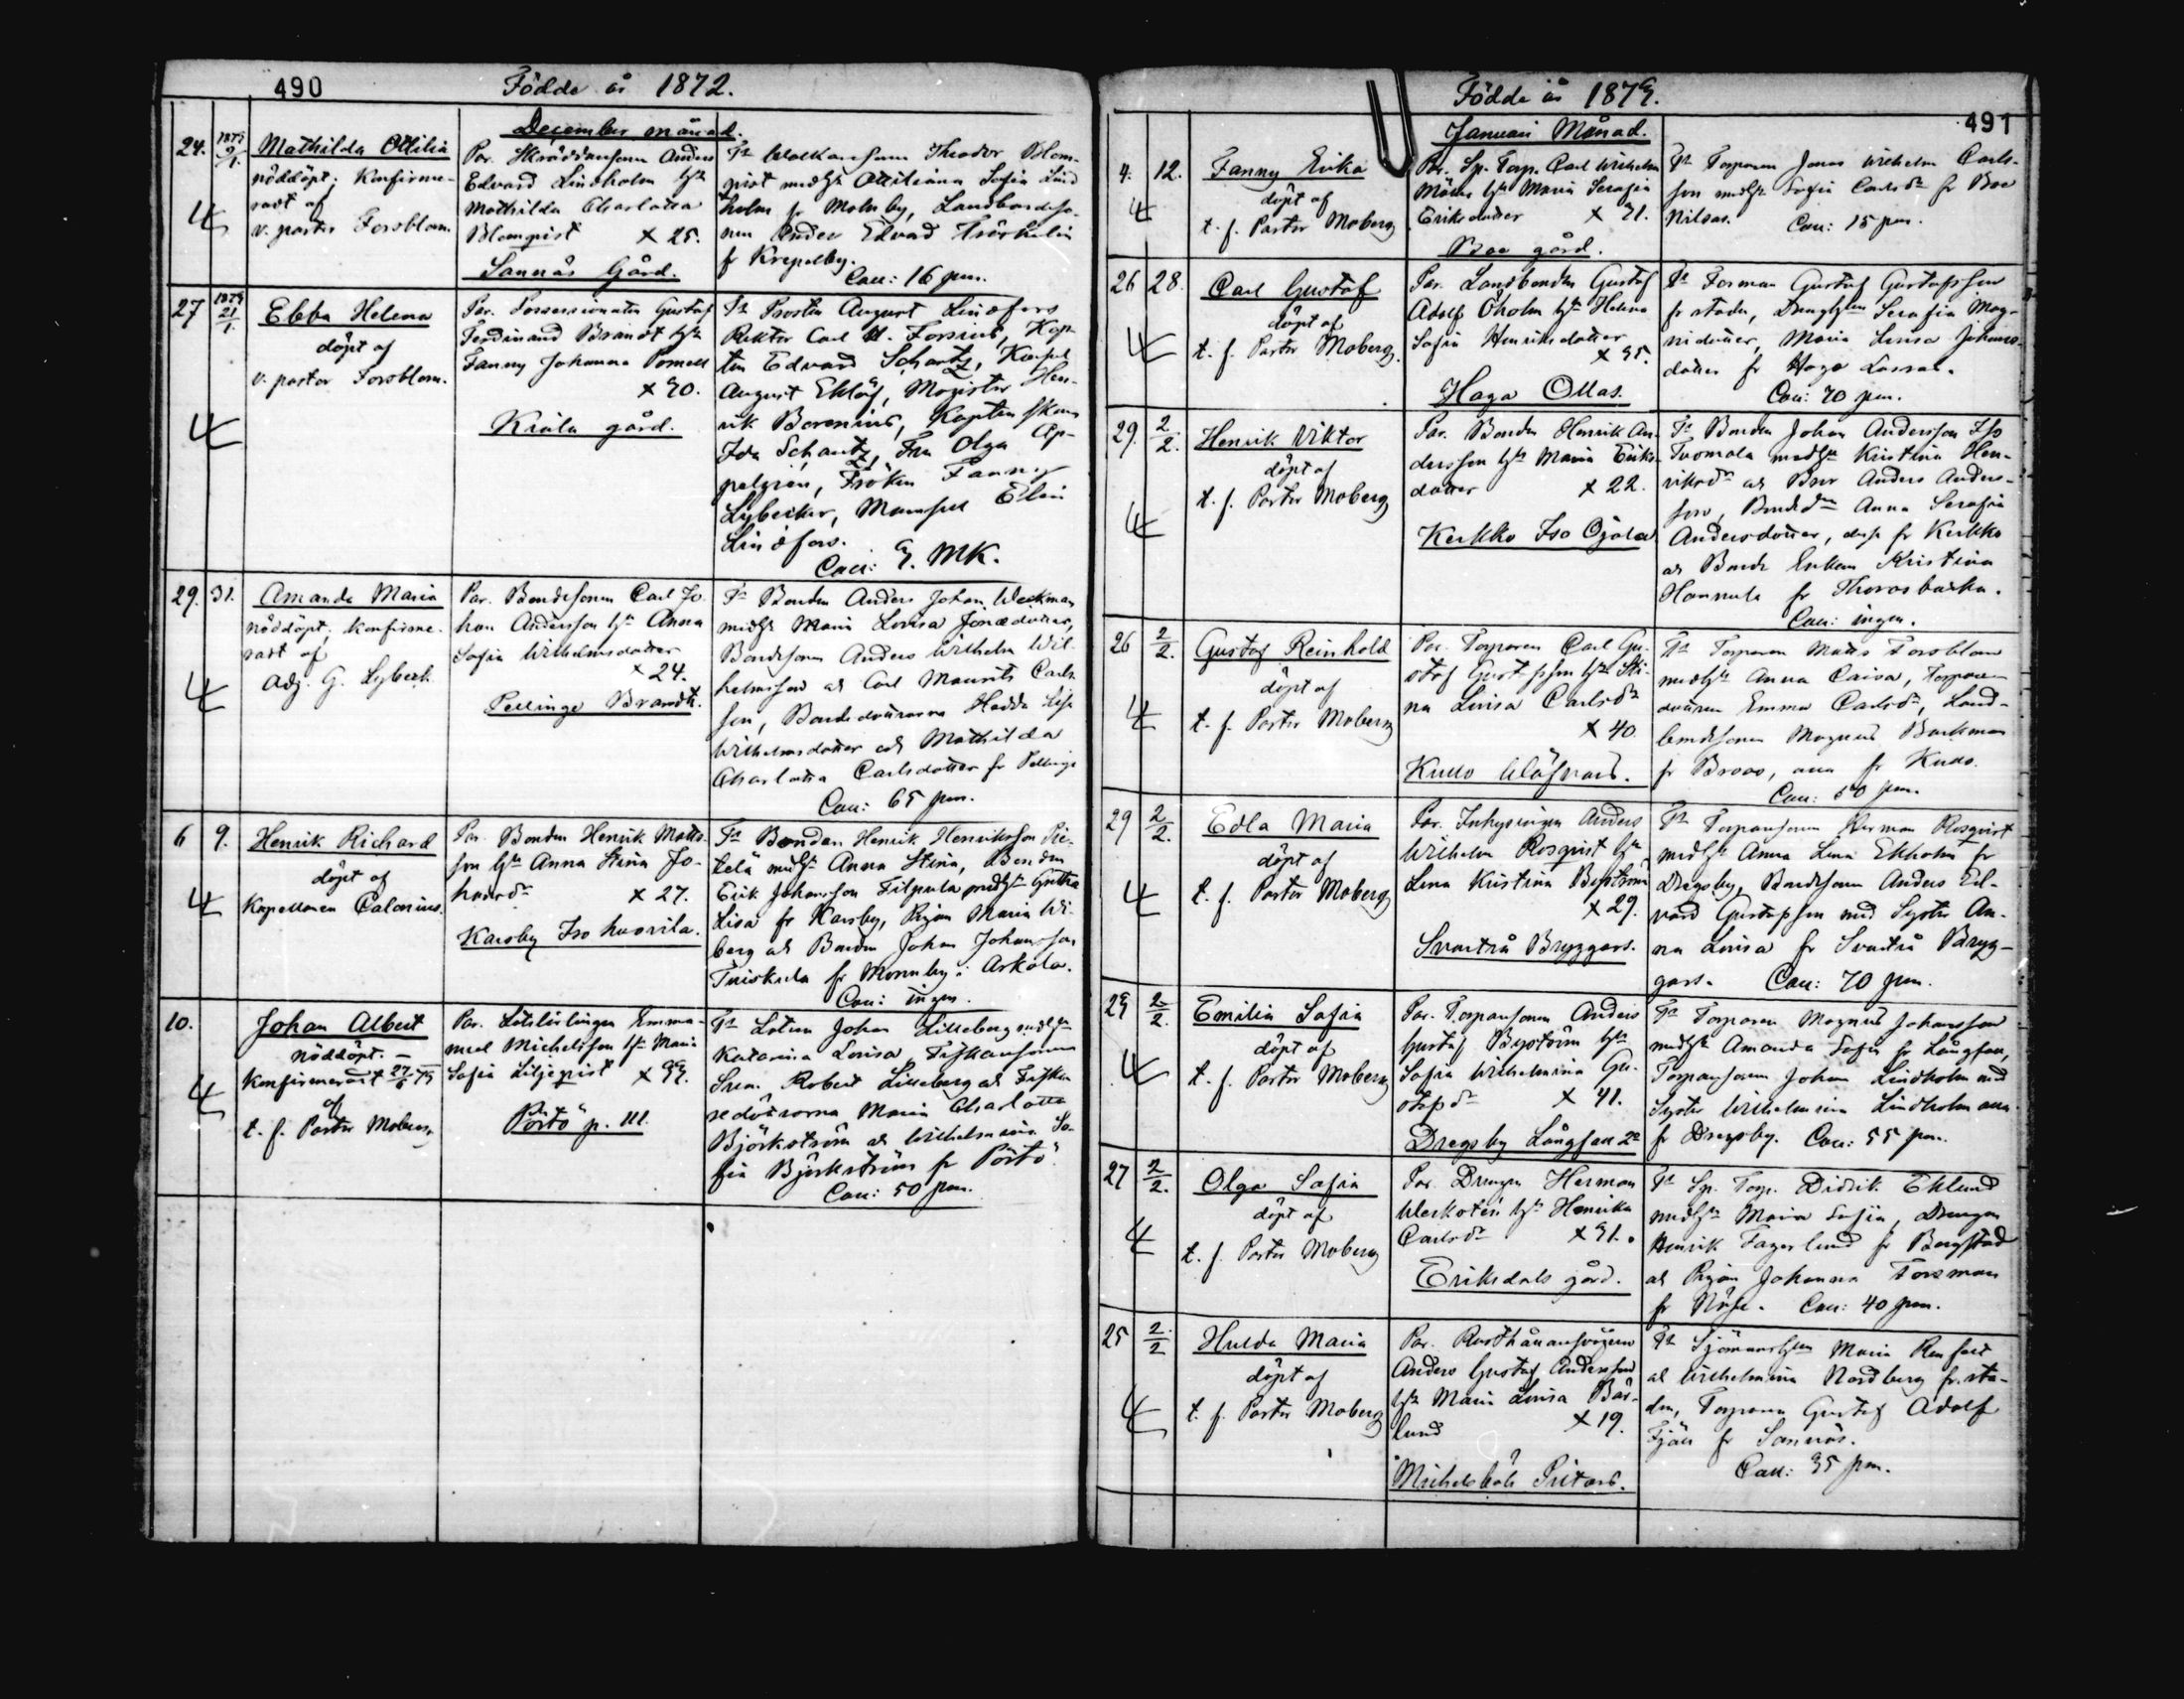 490
Födde år 1872.
December månad.
24.
1873
9/1.
Mathilda Ottilia
nöddöpt; Konfirme-
radt af
v. pastor Forsblom.
Par. Skräddaresonen Anders
Edvard Lindholm hst
Mathilda Charlotta
Blomqvist × 25.
Sannäs Gård.
Ft Theodor Blom-
qvist medhst Ottiliana Sofia Lind
holm fr Malmby, Landbondeso-
nen Anders Edvard
fr Krepelby.
Cau: 16 pm.
27
1873
21/1.
Ebba Helena
döpt af
v. pastor Forsblom.
Par. Possessionaten Gustaf
Ferdinand Brandt hst
Fanny Johanna Pomell
× 30.
Kiala gård.
Ft Prosten August Lindfors
Rektor Carl H. Forsius, Kap-
ten Edvard Schantz,
August Eklöf, Magister Hen-
rik Borenius, Kaptenskan
Ida Schantz, Fru Olga Ap-
pelgren, Fröken Fanny
Lybecker, Mamsell Elin
Lindfors.
Cau: 3. MK.
29. 31.
Amanda Maria
nöddöpt; Konfirme-
radt af
Adj. G. Lybeck
Par. Bondesonen Carl Jo-
han Andersson hst Anna
Sofia Wilhelmsdotter
× 24.
Pellinge Brandts.
Ft Bonden Anders Johan Weckman
medhst Maria Lovisa Jonædotter,
Bondesonen Anders Wilhelm Wil-
helmsson och Carl Maurits Carls-
son, Bondedöttrarna Hedda Lisa
Wilhelmsdotter och Mathilda
Charlotta Carlsdotter fr Pellinge
Cau: 65 pm.
6 9.
Henrik Richard
döpt af
Kapellanen Calonius.
Par. Bonden Henrik Matts-
son hst Anna Stina Jo-
hansdr × 27.
Karsby Iso huovila.
Ft Bonden Henrik Henriksson Pie-
telä medhst Anna Stina, Bonden
Erik Johansson Filpula medhst Greta
Lisa fr Karsby, Pigan Maria Wi-
berg och Bonden Johan Johansson
Tuiskula fr Monnby i Askola.
Cau: ingen.
10.
Johan Albert
nöddöpt. —
Konfirmeradt 27/6 73
af
t. f. Pastor Moberg
Par. Emma-
nuel Michelsson hst Maria
Sofia Liljeqvist × 33.
Pörtö p. 111.
Ft Lotsen Johan Lilleberg medhst
Katarina Lovisa, Fiskaresonen
Sven Robert Lilleberg och Fiska-
redöttrarna Maria Charlotta
Björkström och Wilhelmina So-
fia Björkström fr Pörtö.
Cau: 50 pm.
Födde år 1873.
491
Januari Månad.
4. 12.
Fanny Erika
döpt af
t. f. Pastor Moberg
Par. Sp. Torp. Carl Wilhelm
hst Maria Serafia
Eriksdotter × 31.
Boe gård.
Ft Torparen Jonas Wilhelm Carls-
son medhst Sofia Carlsdr fr Boe
Nilsas. Cau: 15 pm.
26 28.
Carl Gustaf
döpt af
t. f. Pastor Moberg.
Par. Landbonden Gustaf
Adolf Öholm hst Helena
Sofia Henriksdotter
× 35.
Haga Ollas.
Ft Forman Gustaf Gustafsson
fr staden, Serafia Mag-
nidotter, Maria Lovisa Johans-
dotter fr Haga Lassas.
Cau: 70 pm.
29. 2/2.
Henrik Viktor
döpt af
t. f. Pastor Moberg
Par. Bonden Henrik An-
dersson hst Maria Eriks-
dotter × 22.
Kerkko Iso Ojala
Ft Bonden Johan Andersson Iso
Tuomala medhst Kristina Hen-
riksdr och Bror Anders Anders-
son, Anna Serafia
Andersdotter, fr Kerkko
och Bonde Enkan Kristina
Hannula fr Thorasbacka.
Cau: ingen.
26 2/2.
Gustaf Reinhold
döpt af
t. f. Pastor Moberg
Par. Torparen Carl Gu-
staf Gustafsson hst Sti-
na Lovisa Carlsdr
× 40.
Kullo
Ft Torparen Matts Forsblom
medhst Anna Caisa, Torpare-
dottren Emma Carlsdr, Land-
bondesonen Magnus Backman
fr Broas, alla fr Kullo.
Cau: 50 pm.
29 2/2.
Edla Maria
döpt af
t. f. Pastor Moberg
Par. Inhysingen Anders
Wilhelm Rosqvist hst
Lena Kristina Byström
× 29.
Svartså Bryggars.
Ft Torparesonen Herman Rosqvist
medhst Anna Lena Ekholm fr
Drägsby, Bondesonen Anders Ed-
vard Gustafsson med Syster An-
na Lovisa fr Svartså Brygg-
gars. Cau: 70 pm.
23 2/2.
Emilia Sofia
döpt af
t. f. Pastor Moberg
Par. Torparesonen Anders
Gustaf Byström hst
Sofia Wilhelmina Gu-
stafsdr × 41.
Dregsby Långsan
Ft Torparen Magnus Johansson
medhst Amanda Sofia fr Långsan,
Torparesonen Johan Lindholm med
Syster Wilhelmina Lindholm alla
fr Dregsby. Cau: 55 pm.
27 2/2.
Olga Sofia
döpt af
t. f. Pastor Moberg
Par. Drengen Herman
hst Henrika
Carlsdr × 31.
Eriksdals gård.
Ft Sp. Torp. Didrik Eklund
medhst Maria Sofia, Drengen
Henrik Fagerlund fr Bergstad
och Pigan Johanna Forsman
fr Näse. Cau: 40 pm.
25 2/2
Hulda Maria
döpt af
t. f. Pastor Moberg
Par. Rusthållaresonen
Anders Gustaf Andersson
hst Maria Lovisa Bär-
lund × 19.
Michelsböle Pritars.
Ft Maria
och Wilhelmina Nordberg fr sta-
den, Torparen Gustaf Adolf
Fjäll fr Sannäs.
Cau: 35 pm.